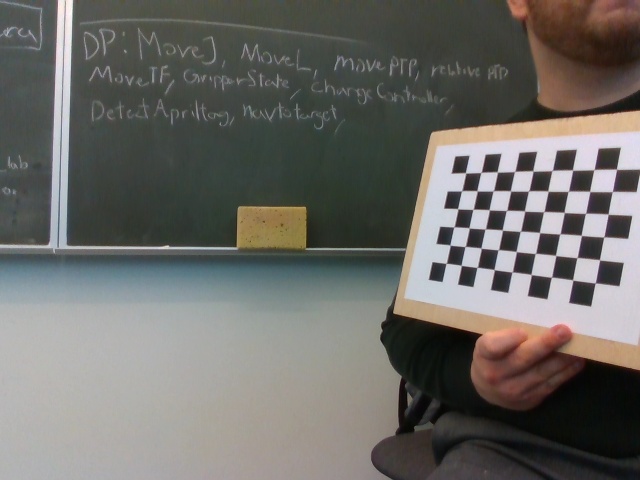 DP: MoveJ, MoveL, movePTP, relative PTP
MoveTF, GripperState, changeController,
DetectApriltag, navtotarget,
_lab